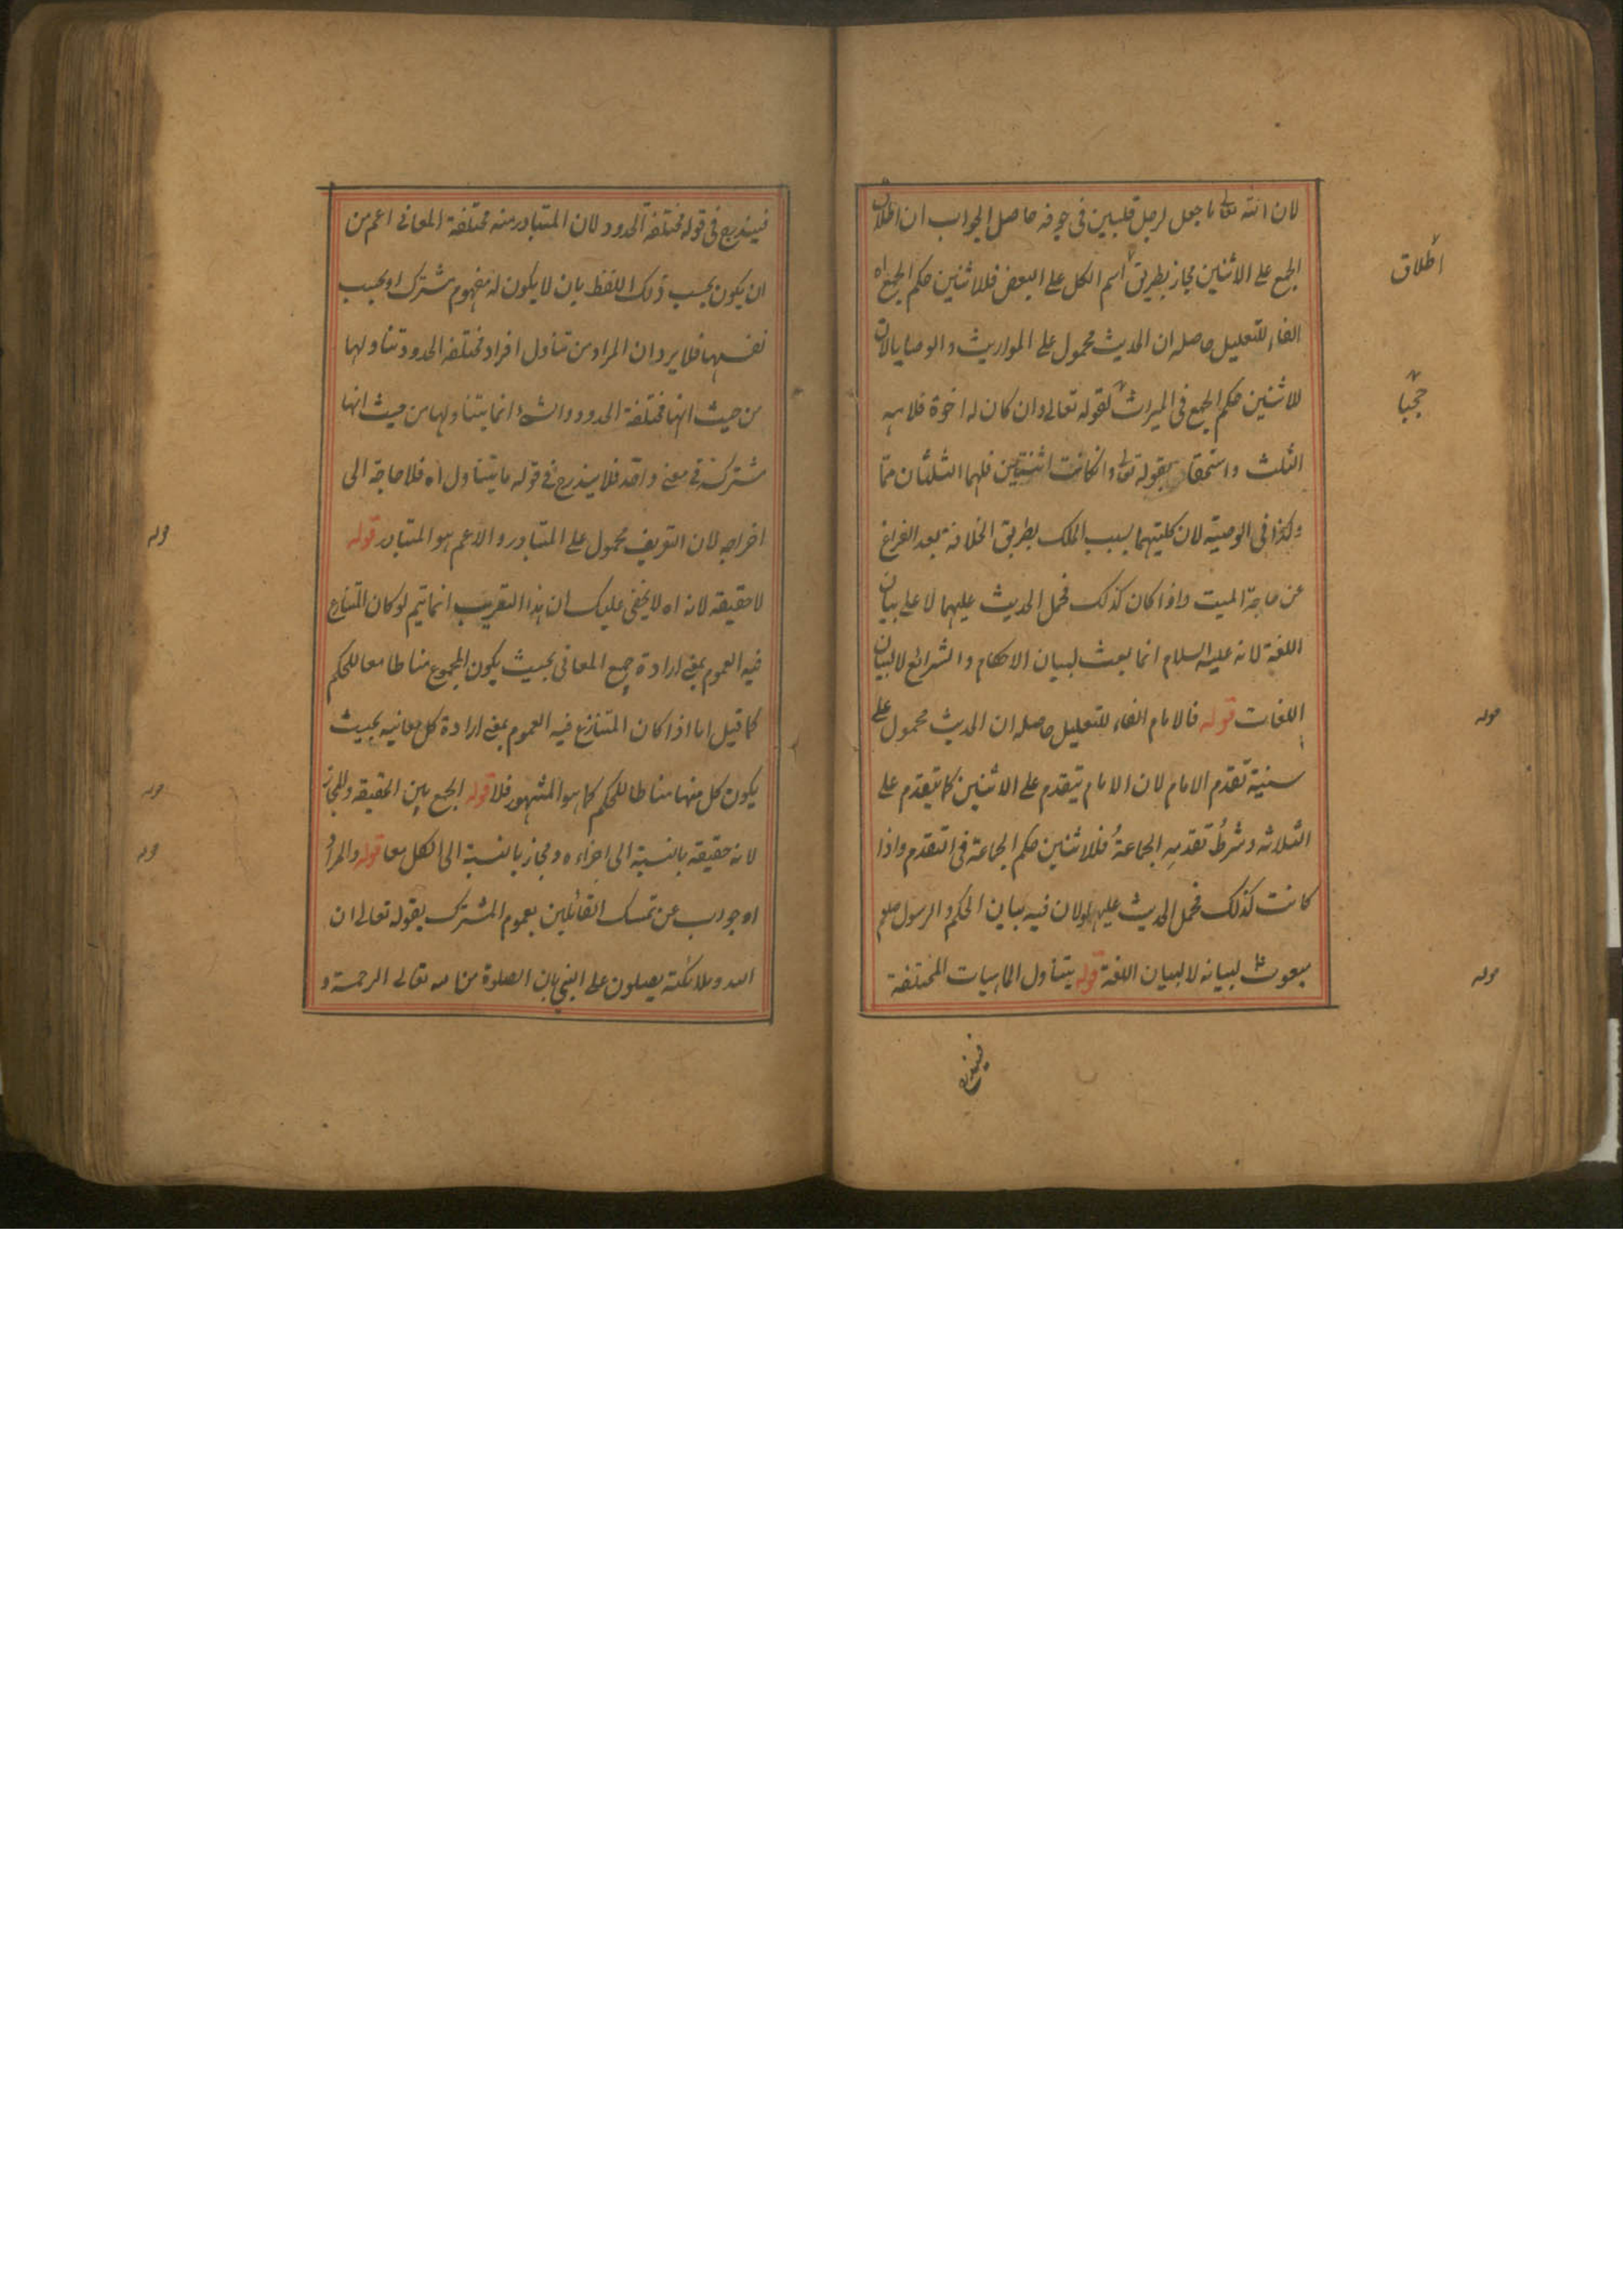 لان الله تعالى ما جعل لرجل قلبين فى جوفه حاصل الجواب ان اطلاق
الجمع على الاثنين مجاز بطريق اسم الكل على البعض فللاثنين حكم الجمع اه
اطلاق
الفاء للتعليل حاصله ان الحديث محمول على المواريث والوصايا لان
للاثنين حكم الجمع فى الميراث لقوله تعالى وان كان له اخوة فلامه
حجبا
الثلث واستحقاقا بقوله تعالى وان كانت اثنتين فلهما الثلثان مما
وكذا فى الوصية لان كليتهما بسبب الملك بطريق الخلافة بعد الفراغ
عن حاجة الميت واذا كان كذلك فحمل الحديث عليهما لا على بيان
اللغة لانه عليه السلام انما بعث لبيان الاحكام والشرائع لا لبيان
اللغات قوله فالامام الفاء للتعليل حاصله ان الحديث محمول على
قوله
سنية تقدم الامام لان الامام يتقدم على الاثنين كما يتقدم على
الثلاثه وشرط تقدمه الجماعة فللاثنين حكم الجماعة فى التقدم واذا
كانت كذلك فحمل الحديث عليها ولان فيه بيان الحكم والرسول صلعم
مبعوث لبيانه لا لبيان اللغة قوله يتناول الماهيات المختلفة
قوله
فيندرج
فيندرج فى قوله مختلفة الحدود لان المتبادر منه مختلفة المعانى اعم من
ان يكون بحسب ذلك اللفظ بان لا يكون له مفهوم مشترك او بحسب
نفسها فلا يرد ان المراد من تناول افراد مختلفه الحدود تناولها
من حيث انها مختلفة الحدود والشئ انما يتناولها من حيث انها
مشتركة فى معنى واحد فلا يندرج فى قوله ما يتناول اه فلا حاجة الى
اخراجه لان التعريف محمول على المتبادر والاعم هو المتبادر قوله
قوله
لا حقيقة لانه اه لا يخفى عليك ان هذا التقريب انما يتم لو كان المتنازع
فيه العموم بمعنى ارادة جميع المعانى بحيث يكون المجموع مناطا معا للحكم
كما قيل اما اذا كان المتنازع فيه العموم بمعنى ارادة كل معانيه بحيث
يكون كل منها مناطا للحكم كما هو المشهور فلا قوله الجمع بين الحقيقة والمجاز
قوله
لانه حقيقه بالنسبة الى اجزاءه ومجاز بالنسبة الى الكل معا قوله والمراد
قوله
اه جواب عن تمسك القائلين بعموم المشترك بقوله تعالى ان
الله وملائكته يصلون على النبى بان الصلوة من الله تعالى الرحمة و